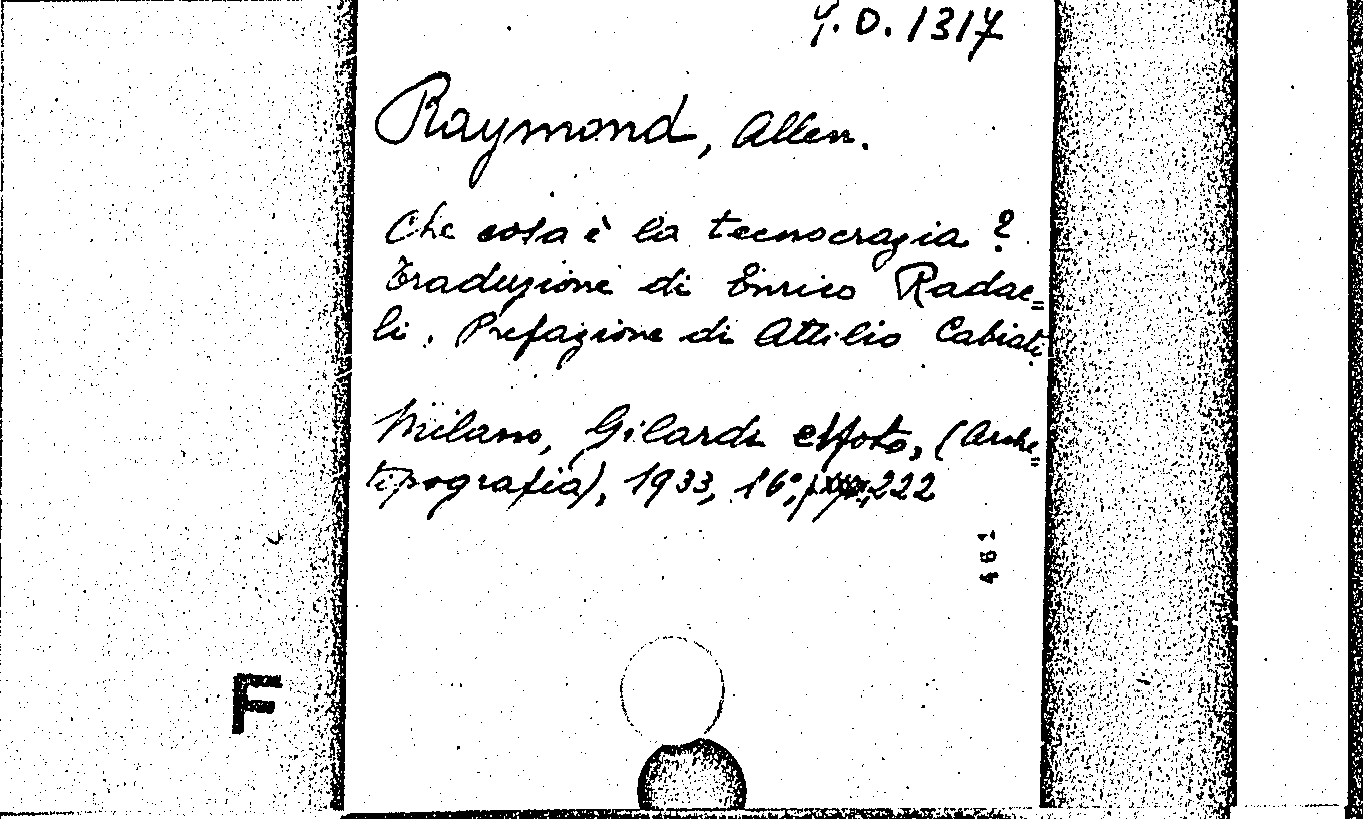 Y.D.1317
Raymond, Allen.
Che cosa è la tecnocrazia?
Traduzione di Enrico Radae=
li. Prefazione di Attilio Cabiati
Milano, Gilardi e Noto, (Arche=
tipografia), 1933, 16°, 222
461
F